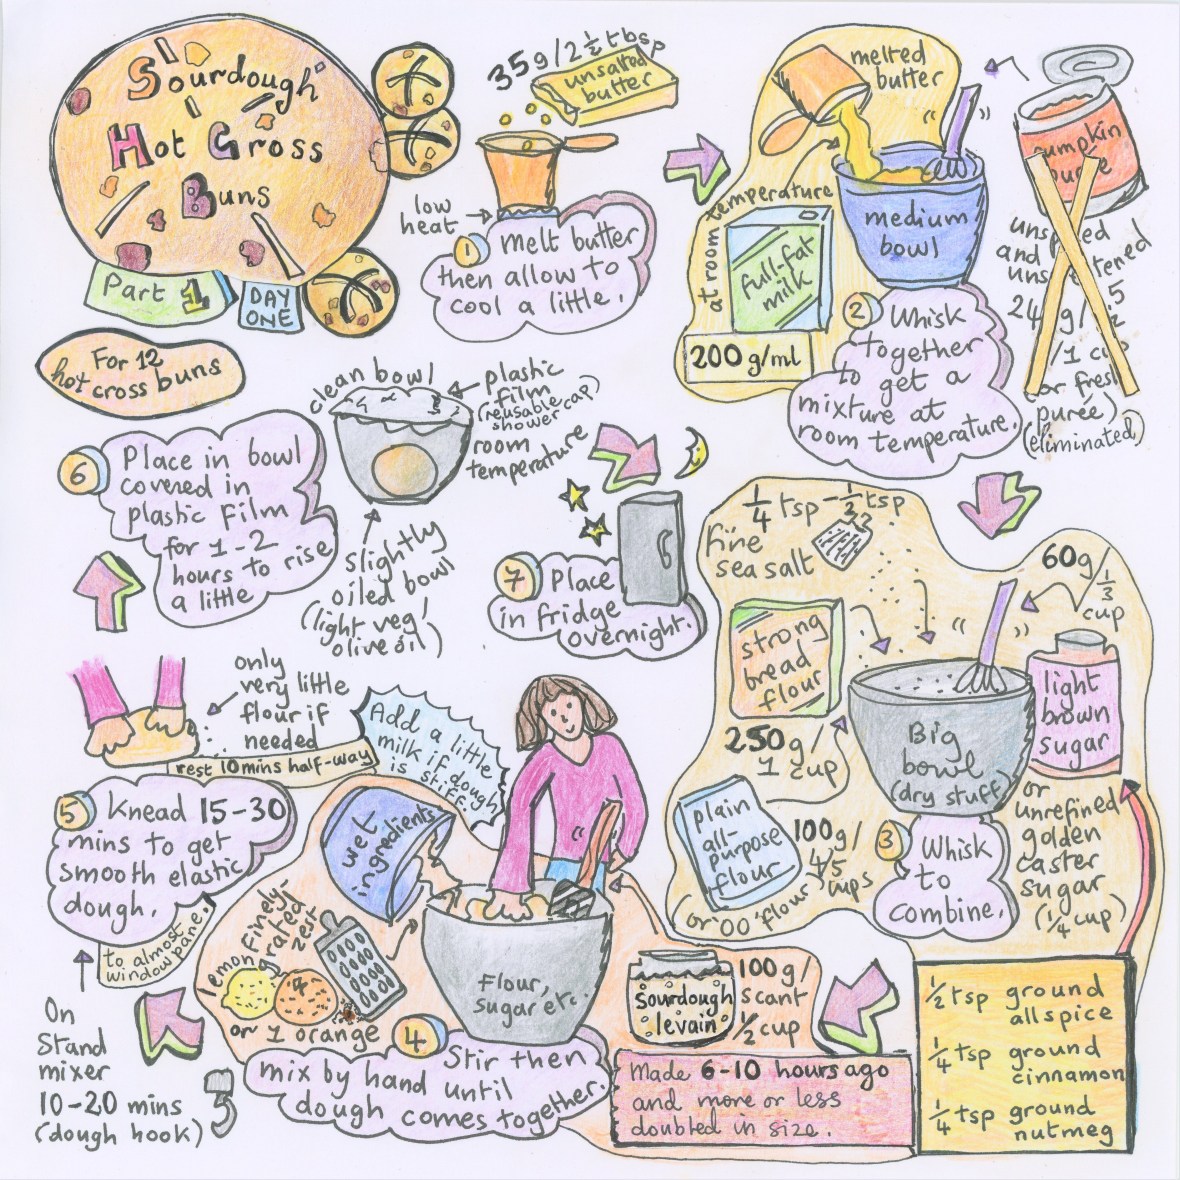 Sourdough
Hot Cross
Buns
Part 1
DAY
ONE
For 12
hot cross buns
35g/2 ½ tbsp
unsalted
butter
low
heat
1 Melt butter
then allow to
cool a little.
melted
butter
at room temperature
full-fat
milk
medium
bowl
200 g/ml
2 Whisk
together
to get a
mixture at
room temperature.
pumpkin
puree
and
/1 cup
or fresh
purée)
(eliminated)
¼ tsp - ½ tsp
fine
sea salt
60g/
⅓
cup
strong
bread
flour
250g/
1 cup
light
brown
sugar
Big
bowl
(dry stuff)
plain
all-
purpose
flour
100g/
4/5
cups
(or '00' flour)
3 Whisk
to
combine.
or
unrefined
golden
caster
sugar
(¼ cup)
½ tsp ground
allspice
¼ tsp ground
cinnamon
¼ tsp ground
nutmeg
sourdough
levain
100g/
scant
½ cup
Made 6-10 hours ago
and more or less
doubled in size.
wet
ingredients
Flour,
sugar etc.
finely-
grated
zest
lemon
or 1 orange
4 Stir then
mix by hand until
dough comes together.
Add a little
milk if dough
is stiff.
only
very little
flour if
needed
rest 10 mins half-way
5 Knead 15-30
mins to get
smooth elastic
dough.
to almost
windowpane.
On
Stand
mixer
10-20 mins
(dough hook)
6 Place in bowl
covered in
plastic film
for 1-2
hours to rise
a little
clean bowl
plastic
film
(reusable
shower cap)
room
temperature
slightly
oiled bowl
(light veg/
olive oil)
7 Place
in fridge
overnight.